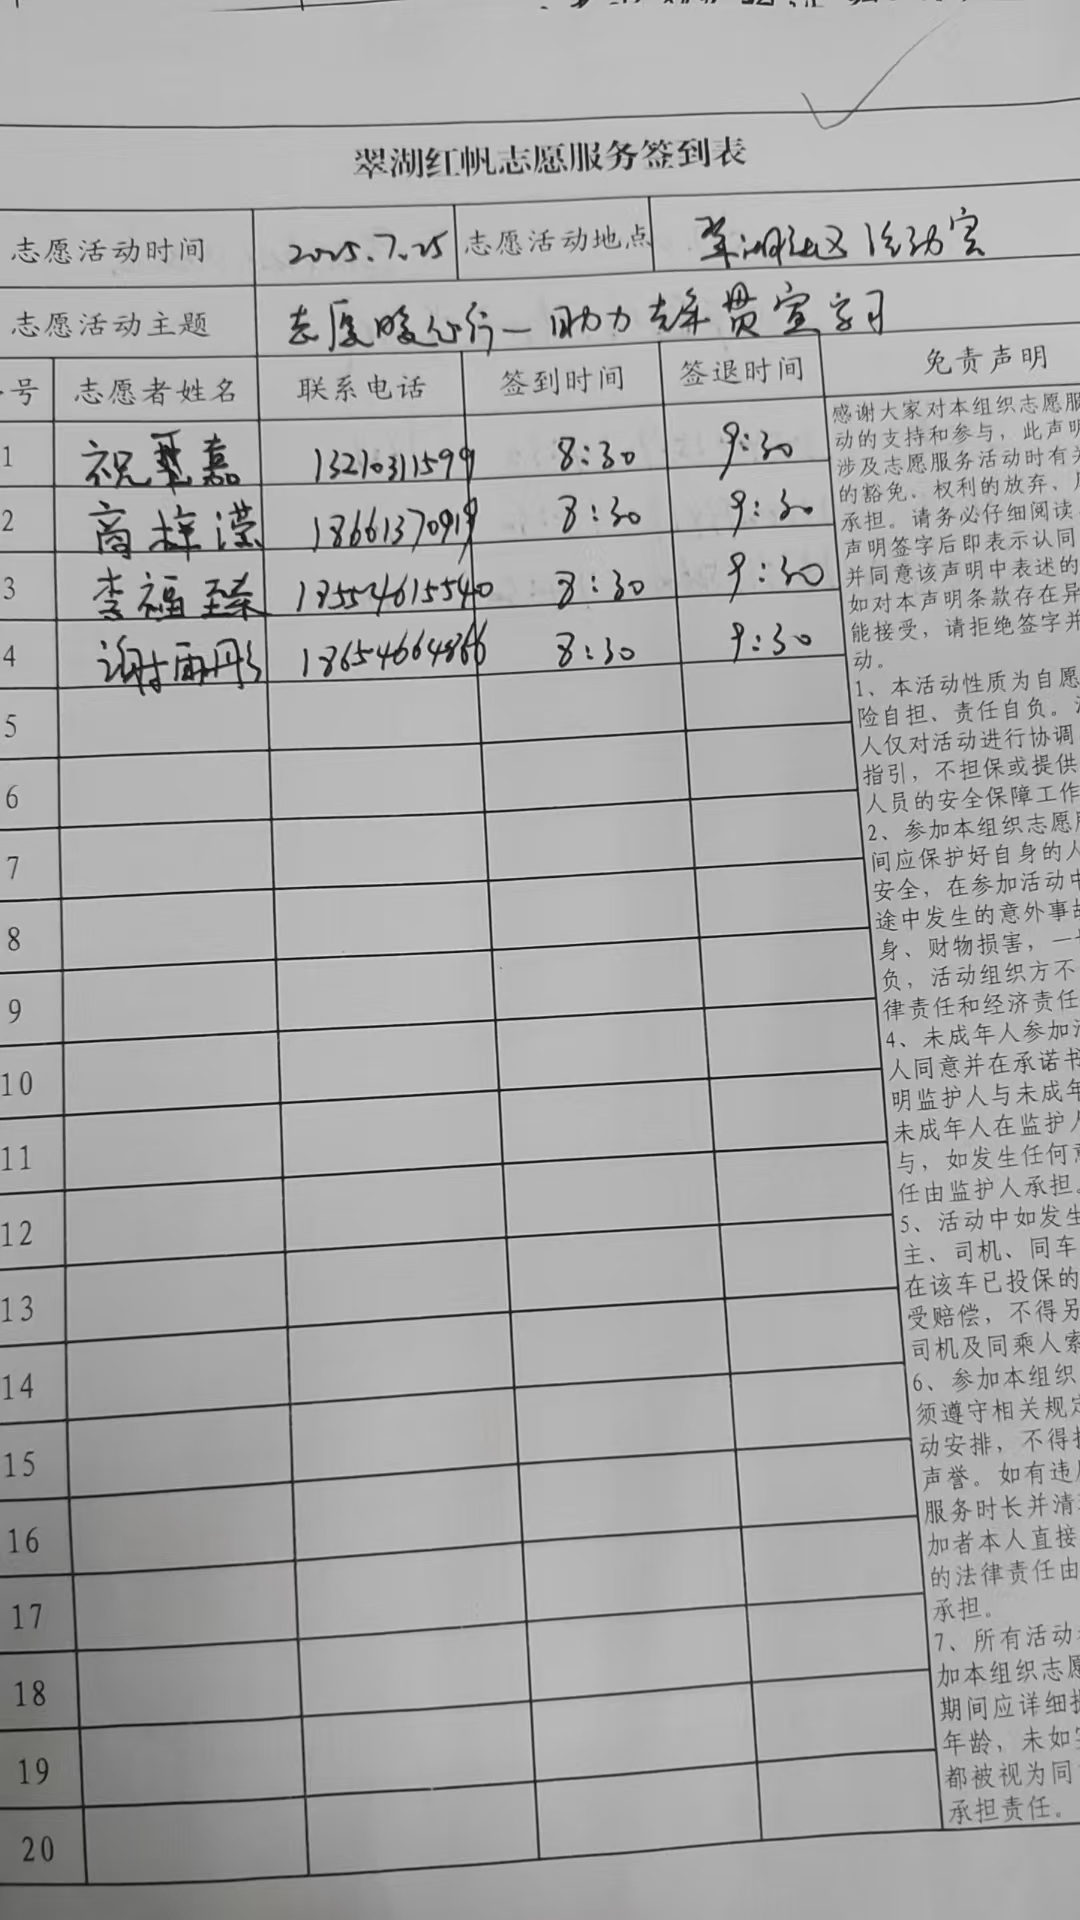 翠湖红帆志愿服务签到表
志愿活动时间 2025.7.25 志愿活动地点 翠湖社区活动室
志愿活动主题 志愿暖心行—助力 贯宣学习
号 志愿者姓名 联系电话 签到时间 签退时间 免责声明
1 祝 嘉 13210311599 8:30 9:30
2 商梓滢 18661370919 8:30 9:30
3 李福臻 18554615540 8:30 9:30
4 谢雨彤 18654664866 8:30 9:30
5
6
7
8
9
10
11
12
13
14
15
16
17
18
19
20
感谢大家对本组织志愿服
动的支持和参与，此声明
涉及志愿服务活动时有关
的豁免、权利的放弃、
承担。请务必仔细阅读
声明签字后即表示认同
并同意该声明中表述的
如对本声明条款存在异
能接受，请拒绝签字并
动。
1、本活动性质为自愿
险自担、责任自负。
人仅对活动进行协调
指引，不担保或提供
人员的安全保障工作
2、参加本组织志愿服
间应保护好自身的人
安全，在参加活动中
途中发生的意外事故
身、财物损害，一
负，活动组织方不
律责任和经济责任
4、未成年人参加活
人同意并在承诺书
明监护人与未成年
未成年人在监护人
与，如发生任何意
任由监护人承担。
5、活动中如发生
主、司机、同车
在该车已投保的
受赔偿，不得另
司机及同乘人索
6、参加本组织
须遵守相关规定
动安排，不得
声誉。如有违
服务时长并清
加者本人直接
的法律责任由
承担。
7、所有活动
加本组织志愿
期间应详细
年龄，未如实
都被视为同
承担责任。